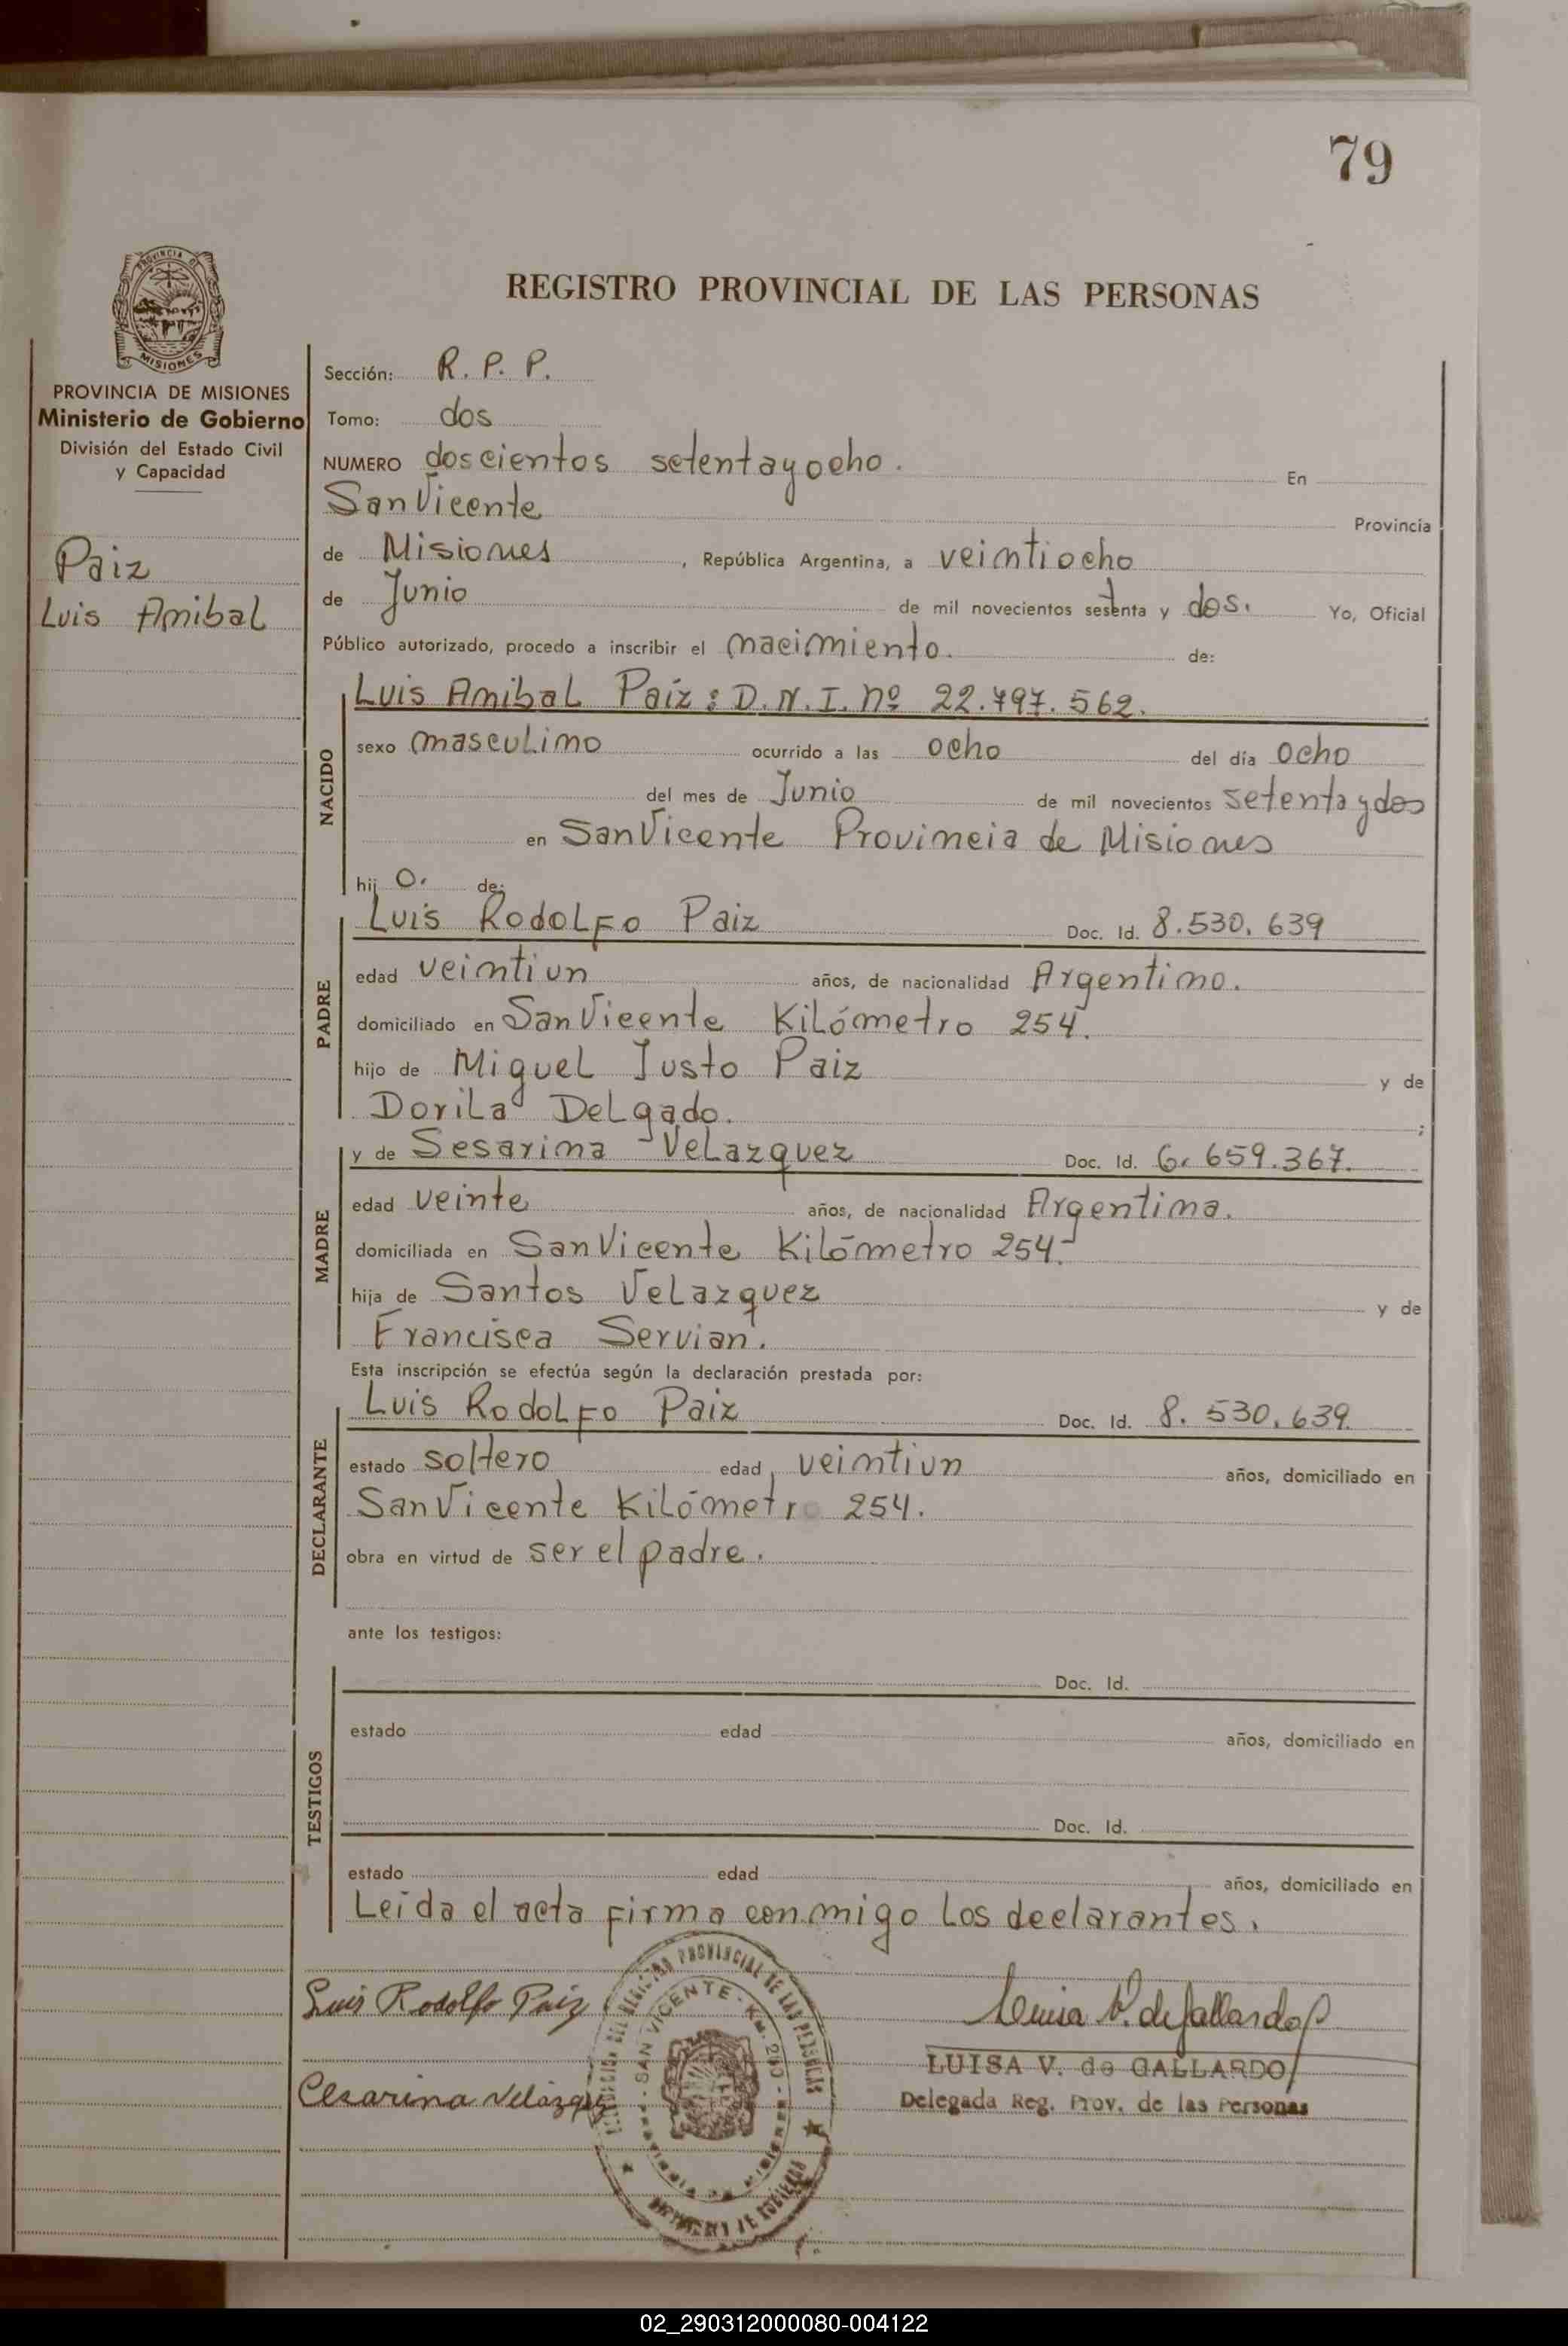 79
REGISTRO PROVINCIAL DE LAS PERSONAS
PROVINCIA DE MISIONES
Ministerio de Gobierno
División del Estado Civil
y Capacidad
Paiz
Luis Anibal
Sección: R. P. P.
Tomo: dos
NUMERO doscientos setentayocho. En
San Vicente Provincia
de Misiones, República Argentina, a veintiocho
de Junio de mil novecientos setenta y dos. Yo, Oficial
Público autorizado, procedo a inscribir el nacimiento. de:
NACIDO
Luis Anibal Paiz: D.N.I. nº 22.797.562.
sexo masculino ocurrido a las ocho del día ocho
del mes de Junio de mil novecientos setenta y dos
en San Vicente Provincia de Misiones
hij o. de:
PADRE
Luis Rodolfo Paiz Doc. Id. 8.530.639
edad veintiun años, de nacionalidad Argentino.
domiciliado en San Vicente Kilómetro 254.
hijo de Miguel Justo Paiz y de
Dorila Delgado. ;
MADRE
y de Sesarina Velazquez Doc. Id. 6.659.367.
edad veinte años, de nacionalidad Argentina.
domiciliada en San Vicente Kilómetro 254.
hija de Santos Velazquez y de
Francisca Servian.
Esta inscripción se efectúa según la declaración prestada por:
DECLARANTE
Luis Rodolfo Paiz Doc. Id. 8.530.639.
estado soltero edad veintiun años, domiciliado en
San Vicente Kilómetro 254.
obra en virtud de ser el padre.
ante los testigos:
TESTIGOS
Doc. Id.
estado edad años, domiciliado en
Doc. Id.
estado edad años, domiciliado en
Leída el acta firma conmigo los declarantes.
Luis Rodolfo Paiz
Cesarina Velázquez
Luisa V. de Gallardo
LUISA V. de GALLARDO
Delegada Reg. Prov. de las Personas
SAN VICENTE - KM.
02_290312000080-004122